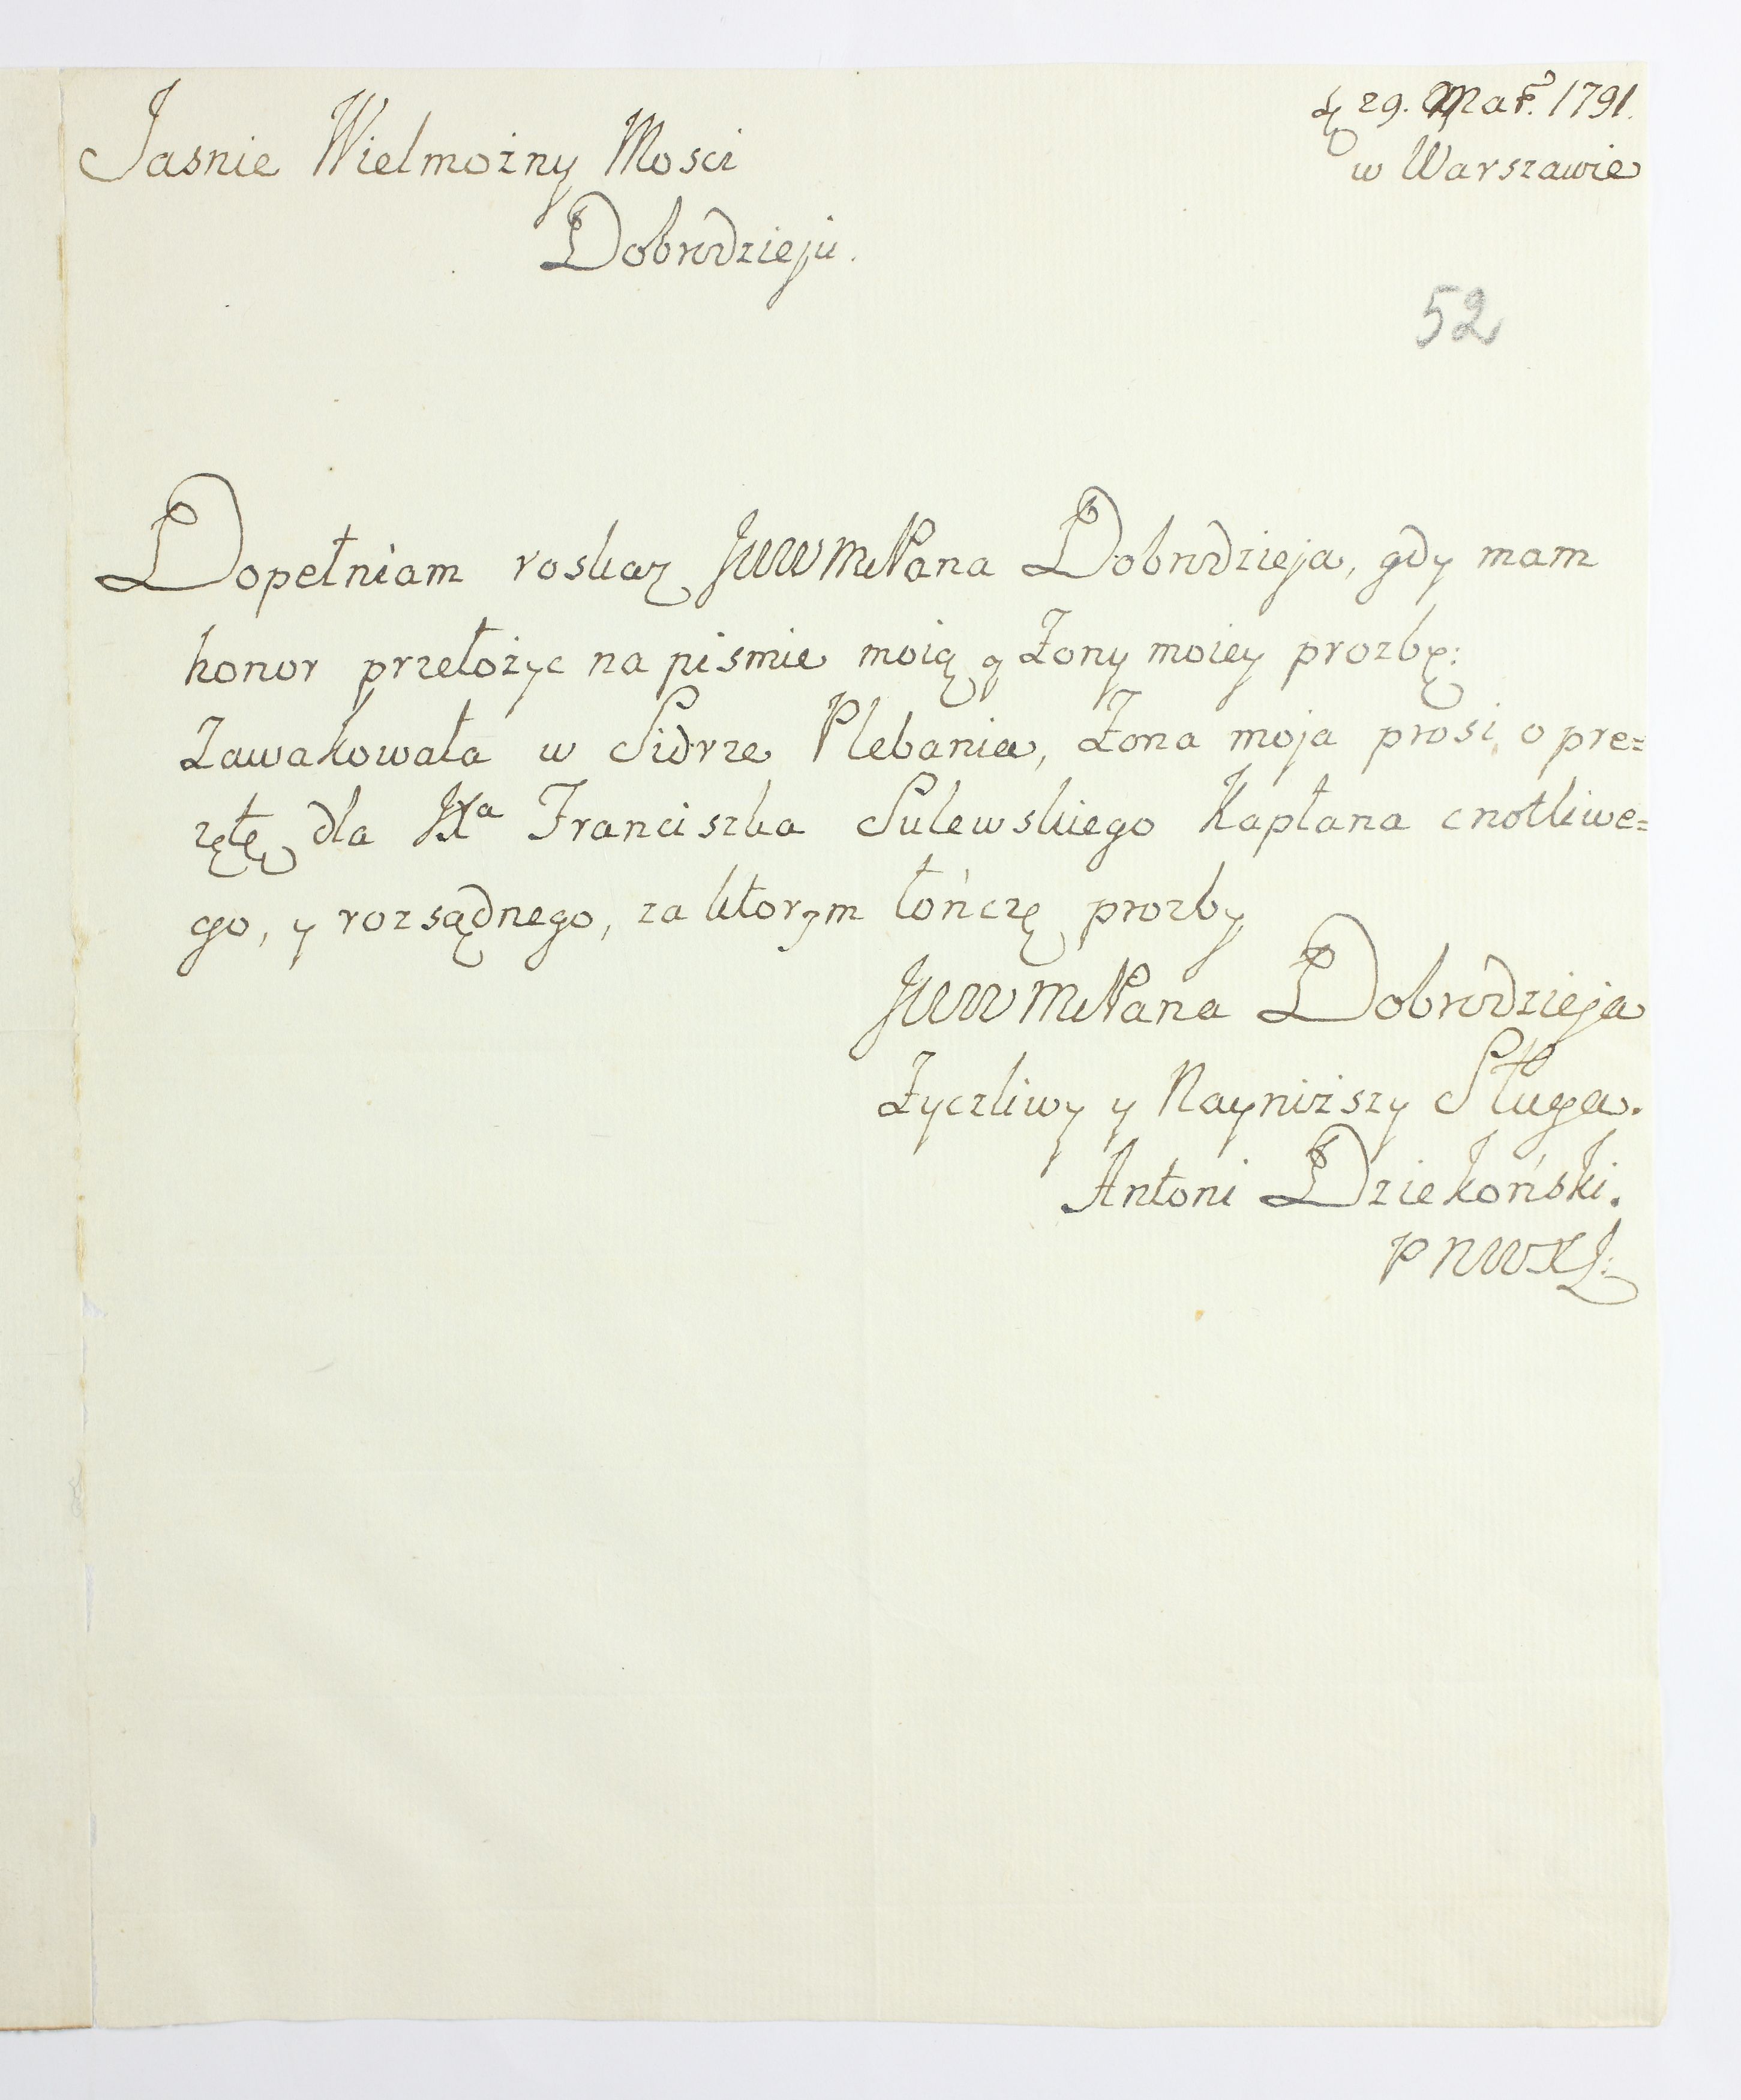 d 29. Mar. 1791.
Jasnie Wielmożny Mosci
w Warszawie
Dobrodzieju.
52
Dopełniam roskaz JWWMPana Dobrodzieja, gdy mam
honor przełożyc na pismie moią y Żony moiey prozbę:
Zawakowała w Sidrze Plebania, Żona moja prosi o pre=
zętę dla JXa Franciszka Sulewskiego Kapłana cnotliwe=
go, y rozsądnego, za ktorym łończę prozby
JWWMPana Dobrodzieja
Życzliwy y Nayniższy Sługa.
Antoni Dziekoński.
PNWXL: